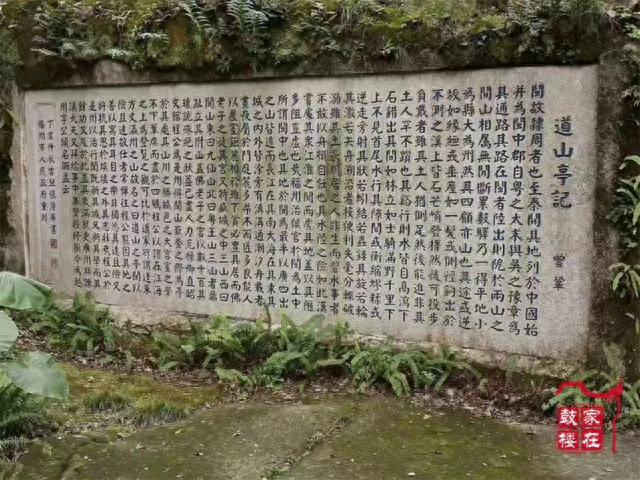 道山亭記
曾鞏
閩故隸周者也至秦開其地列於中國始
并為閩中郡自粤之太末與吳之豫章為
其通路其路在閩者陸出則阸於兩山之
間山相屬無間斷累數驛乃一得平地小
為縣大為州然其四顧亦山也其途或逆
坂如緣絙或垂崖如一髮或側徑鉤出於
不測之溪上皆石芒峭發擇然後可投步
負戴者雖其土人猶側足然後能進非其
土人罕不躓也其谿行則水皆自高瀉下
石錯出其間如林立如士騎滿野千里下
上不見首尾水行其隙間或衡縮蟉糅或
逆走旁射其狀若蚓結若蟲鏤其旋若輪
其激若矢舟溯沿者投便利失毫分輒破
溺雖其土長川居之人非生而習水事者
不敢以舟楫自任也其水陸之險如此漢
嘗處其眾江淮之間而虛其地蓋以其陿
多阻豈虛也哉福州治侯官於閩為土中
所謂閩中也其地於閩為最平以廣四出
之山皆遠而長江在其南大海在其東其
城之內外皆涂旁有溝溝通潮汐舟載者
晝夜屬於門庭麓多桀木而匠多良能人
以屋室鉅麗相矜雖下貧必豐其居而佛
老子之徒其宮又特盛城之中三山西曰
閩山東曰九仙山北曰粤王山三山者鼎
趾立其附山蓋佛老子之宮以數十百其
瑰詭殊絕之狀蓋已盡人力光祿卿直昭
文館程公為是州得閩山嶔崟之際為亭
於其處其山川之勝城邑之大宮室之榮
不下簟席而盡於四矚程公以謂在江海
之上為登覽之觀可比於道家所謂蓬萊
方丈瀛州之山故名之曰道山之亭閩以
險且遠故仕者常憚往程公能因其地之
善以寓其耳目之樂非獨忘其遠且險又
將抗其思於埃壒之外其志壯哉程公於
是州以治行聞既新其城又新其學而其
餘功又及於此蓋其歲滿就更廣州拜諫
議大夫又拜給事中集賢殿修撰今為越
州字公闢名師孟云
丁亥仲秋
福州市人民政府
家在
鼓楼